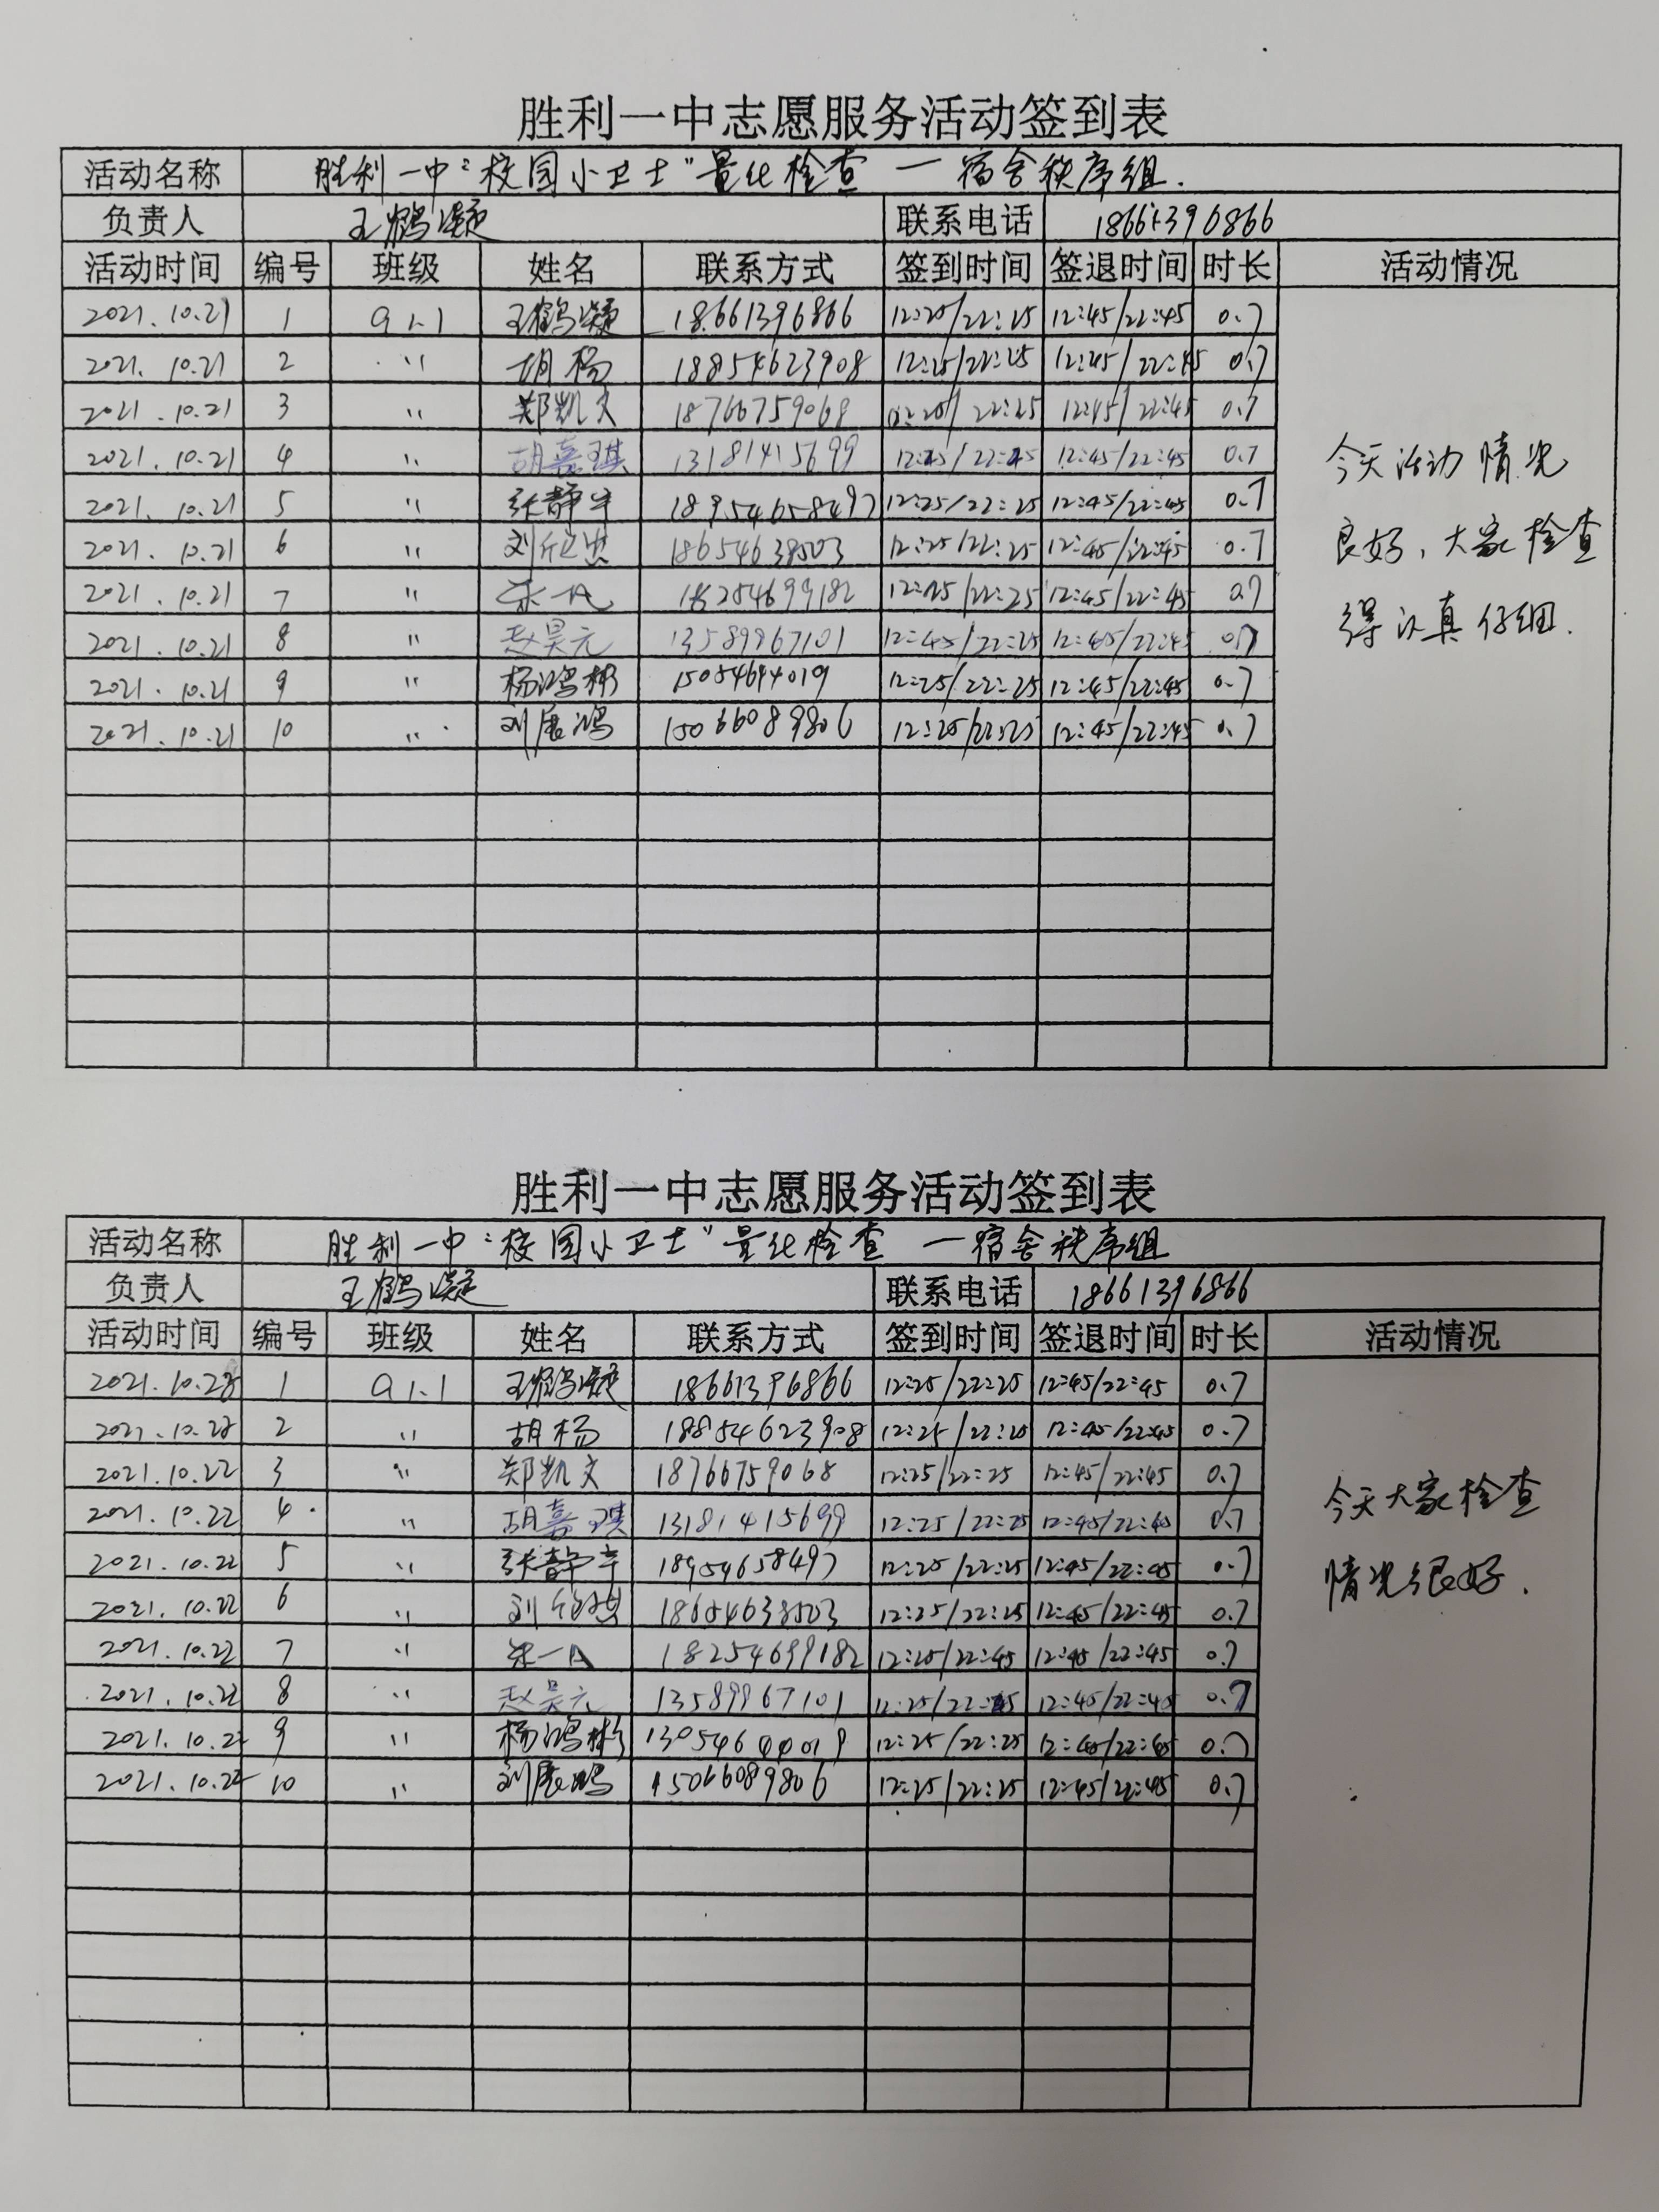 胜利一中志愿服务活动签到表
活动名称 胜利一中“校园小卫士”量化检查 — 宿舍秩序组.
负责人 王鹤凝 联系电话 18661396866
活动时间 编号 班级 姓名 联系方式 签到时间 签退时间 时长 活动情况
2021.10.21 1 王鹤凝 18661396866 12:25/22:25 12:45/22:45 0.7
2021.10.21 2 〃 胡杨 18854623908 12:25/22:25 12:45/22:45 0.7
2021.10.21 3 〃 郑凯文 18766759068 22:25 12:45/22:45 0.7
2021.10.21 4 〃 胡嘉琪 13181415699 12:25/22:25 12:45/22:45 0.7
2021.10.21 5 〃 张静宇 12:25/22:25 12:45/22:45 0.7
2021.10.21 6 〃 18654638503 12:25/22:25 12:45/22:45 0.7
2021.10.21 7 〃 18254699182 12:25/22:25 12:45/22:45 0.7
2021.10.21 8 〃 赵昊元 13589967101 12:45/22:25 12:45/22:45 0.7
2021.10.21 9 〃 杨鸿彬 15054644019 12:25/22:25 12:45/22:45 0.7
2021.10.21 10 〃 刘展鸿 15066089806 12:25/22:25 12:45/22:45 0.7
今天活动情况
良好，大家检查
得认真仔细.
胜利一中志愿服务活动签到表
活动名称 胜利一中“校园小卫士”量化检查 — 宿舍秩序组
负责人 王鹤凝 联系电话 18661396866
活动时间 编号 班级 姓名 联系方式 签到时间 签退时间 时长 活动情况
1 王鹤凝 18661396866 12:25/22:25 12:45/22:45 0.7
2 〃 胡杨 18854623908 12:25/22:25 12:45/22:45 0.7
2021.10.22 3 〃 郑凯文 18766759068 12:25/22:25 12:45/22:45 0.7
2021.10.22 4 〃 胡嘉琪 13181415699 12:25/22:25 12:45/22:45 0.7
2021.10.22 5 〃 张静宇 18954658497 12:25/22:25 12:45/22:45 0.7
2021.10.22 6 〃 18654638503 12:25/22:25 12:45/22:45 0.7
2021.10.22 7 〃 18254699182 12:25/22:45 12:45/22:45 0.7
2021.10.22 8 〃 赵昊元 13589967101 12:25/22:25 12:45/22:45 0.7
2021.10.22 9 〃 杨鸿彬 13054644019 12:25/22:25 12:45/22:45 0.7
2021.10.22 10 〃 刘展鸿 15066089806 12:25/22:25 12:45/22:45 0.7
今天大家检查
情况很好.